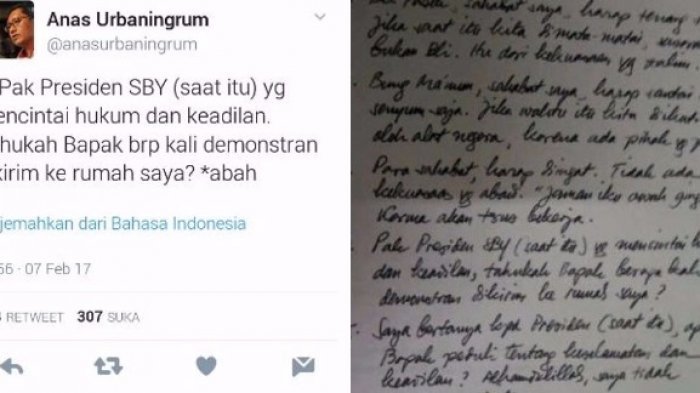 Anas Urbaningrum
@anasurbaningrum
Pak Presiden SBY (saat itu) yg
encintai hukum dan keadilan.
hukah Bapak brp kali demonstran
kirim ke rumah saya? *abah
jemahkan dari Bahasa Indonesia
56 · 07 Feb 17
RETWEET 307 SUKA
sahabat saya, harap tenang
Jika saat itu kita dimata-matai,
bukan Eli. Itu dari kekuasaan yg zalim.
Bung Ma'mun, sahabat saya, harap santai
senyum saja. Jika waktu itu kita
oleh alat negara, karena ada pihak yg
Para sahabat, harap diingat. Tidak ada
kekuasaan yg abadi. "Jaman iku owah
Karma akan terus bekerja.
Pak Presiden SBY (saat itu) yg mencintai
dan keadilan, tahukah Bapak berapa
demonstran dikirim ke rumah saya?
Saya bertanya kpd Presiden (saat itu), ap
Bapak peduli tentang keselamatan dan
keadilan? Alhamdulillah, saya tidak